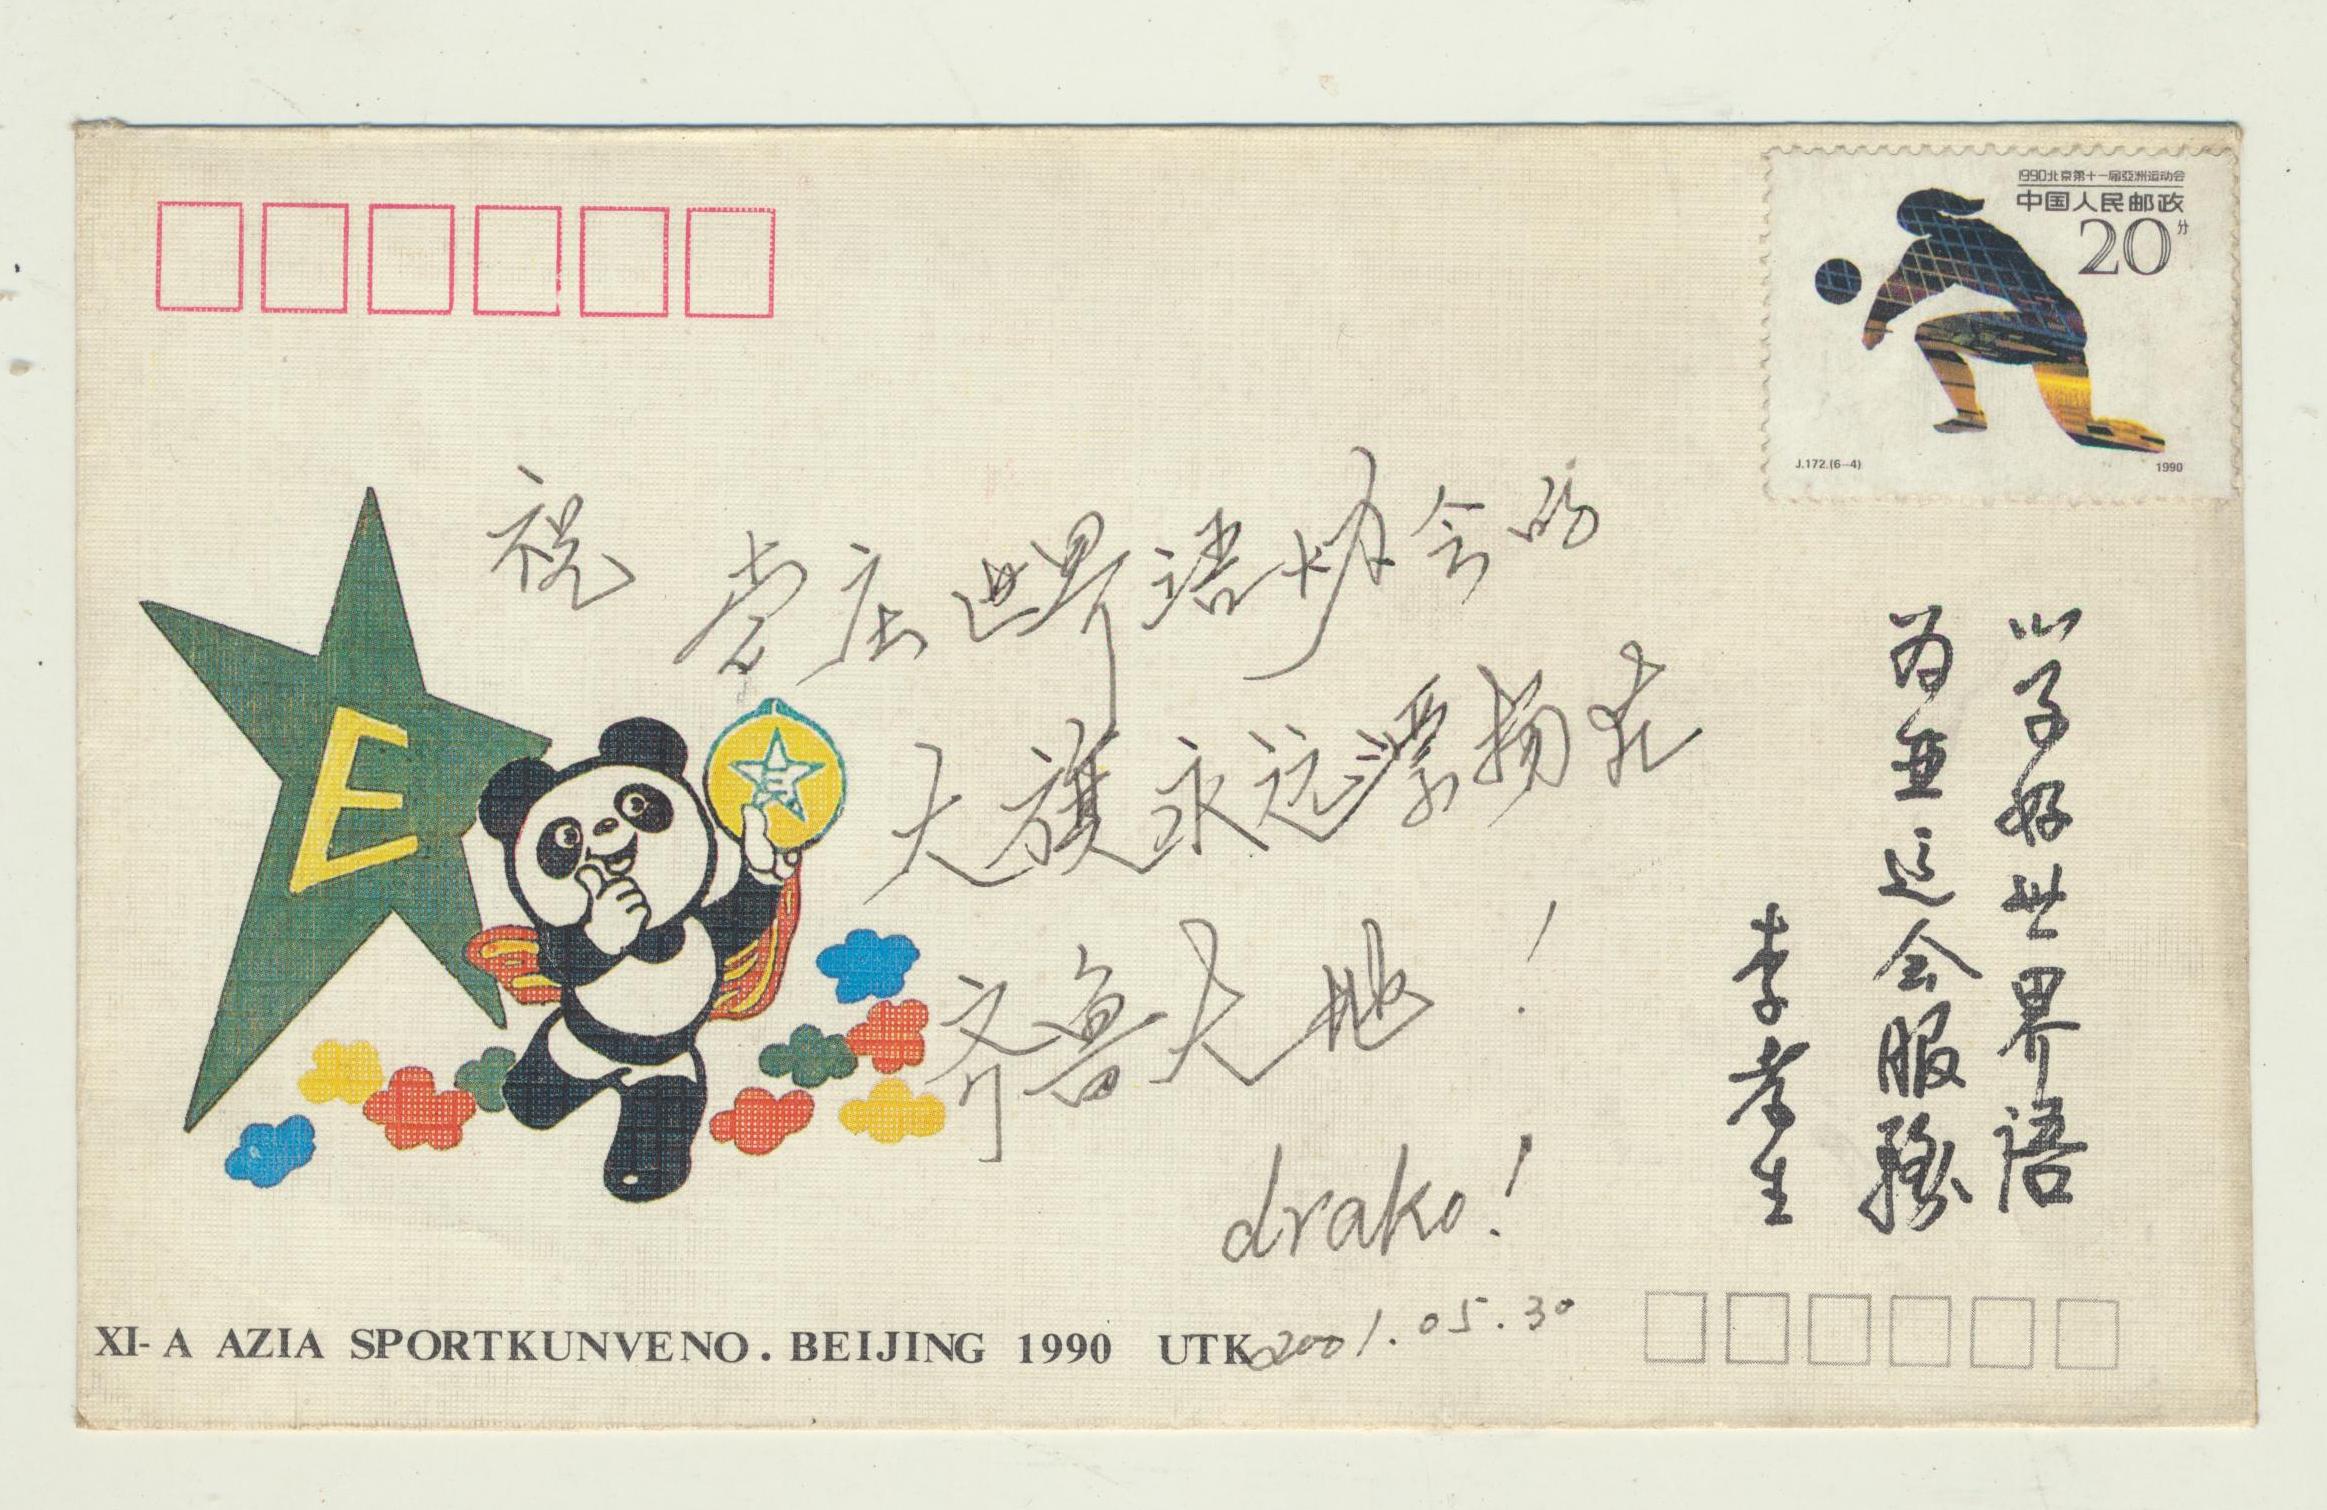 1990北京第十一届亞洲运动会
中国人民邮政
20分
J.172.(6-4)
1990
祝 枣庄世界语协会的
大旗永远飘扬在
齐鲁大地！
drako!
2001.05.30
学好世界语
为亚运会服务
李孝生
E
E
XI-A AZIA SPORTKUNVENO. BEIJING 1990 UTK